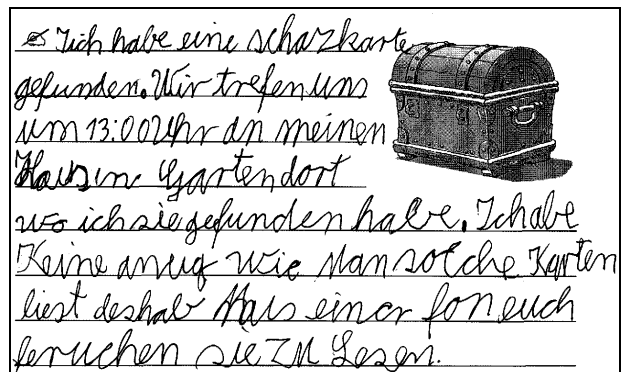 Iich habe eine schazkarte
gefunden. Wir trefen uns
um 13:00 Uhr an meinen
Haus in Garten dort
wo ich sie gefunden habe. Ich abe
Keine anug wie Man solche Karten
liest deshalb Mus einer fon euch
feruchen sie zu Lesen.